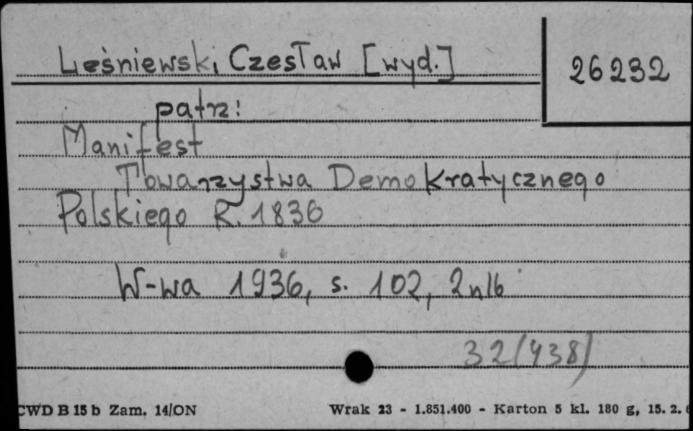 Leśniewski, Czesław [wyd.]
26232
patrz:
Manifest
Towarzystwa Demokratycznego
Polskiego R. 1836
W-wa 1936, s. 102, 2 nlb
32/(438)
CWD B 15 b Zam. 14/ON
Wrak 23 - 1.851.400 - Karton 5 kl. 180 g, 15. 2.